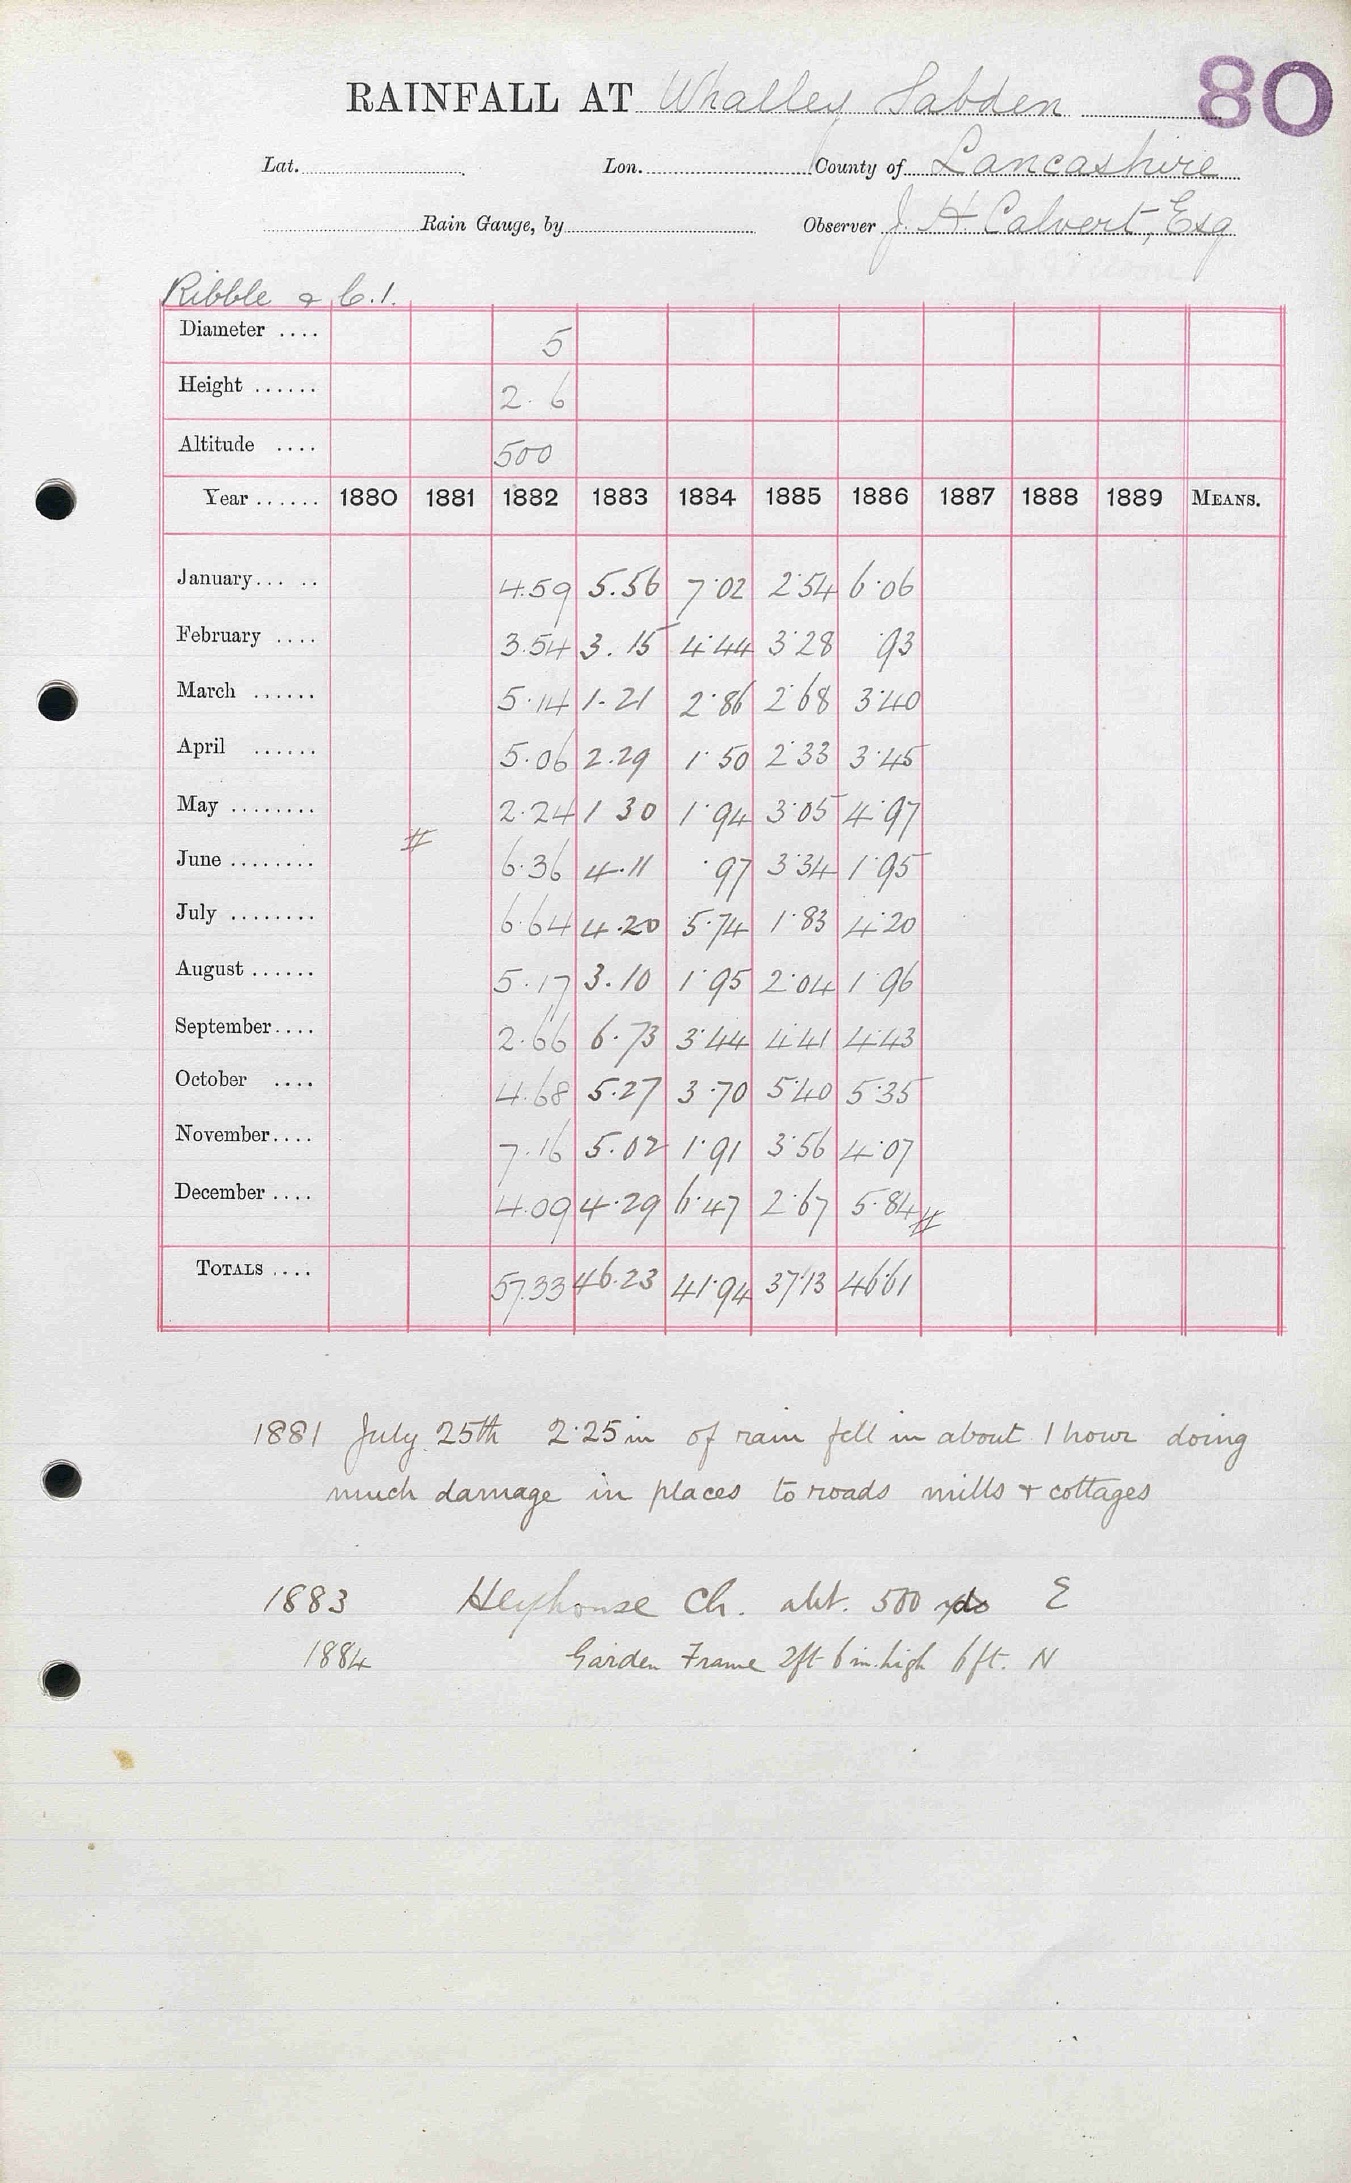 80
RAINFALL AT Whalley Sabden
Lat. Lon. County of Lancashire
Rain Gauge, by Observer J. H. Calvert, Esq
Ribble & C.1.
Diameter .... 5
Height ...... 2. 6
Altitude .... 500
Year ...... 1880 1881 1882 1883 1884 1885 1886 1887 1888 1889 MEANS.
January... .. 4.59 5.56 7.02 2.54 6.06
February .... 3.54 3.15 4.44 3.28 .93
March ...... 5.14 1.21 2.86 2.68 3.40
April ...... 5.06 2.29 1.50 2.33 3.45
May ........ 2.24 1 30 1.94 3.05 4.97
June ........ # 6.36 4.11 .97 3.34 1.95
July ........ 6.64 4.20 5.74 1.83 4.20
August ...... 5.17 3.10 1.95 2.04 1.96
September.... 2.66 6.73 3.44 4.41 4.43
October .... 4.68 5.27 3.70 5.40 5.35
November.... 7.16 5.02 1.91 3.56 4.07
December .... 4.09 4.29 6.47 2.67 5.84 #
TOTALS .... 57.33 46.23 41.94 37.13 46.61
1881 July 25th 2.25 in of rain fell in about 1 hour doing
much damage in places to roads mills & cottages
1883 Heyhouse Ch. abt. 500 yds E
1884 Garden Frame 2ft 6 in. high 6 ft. N